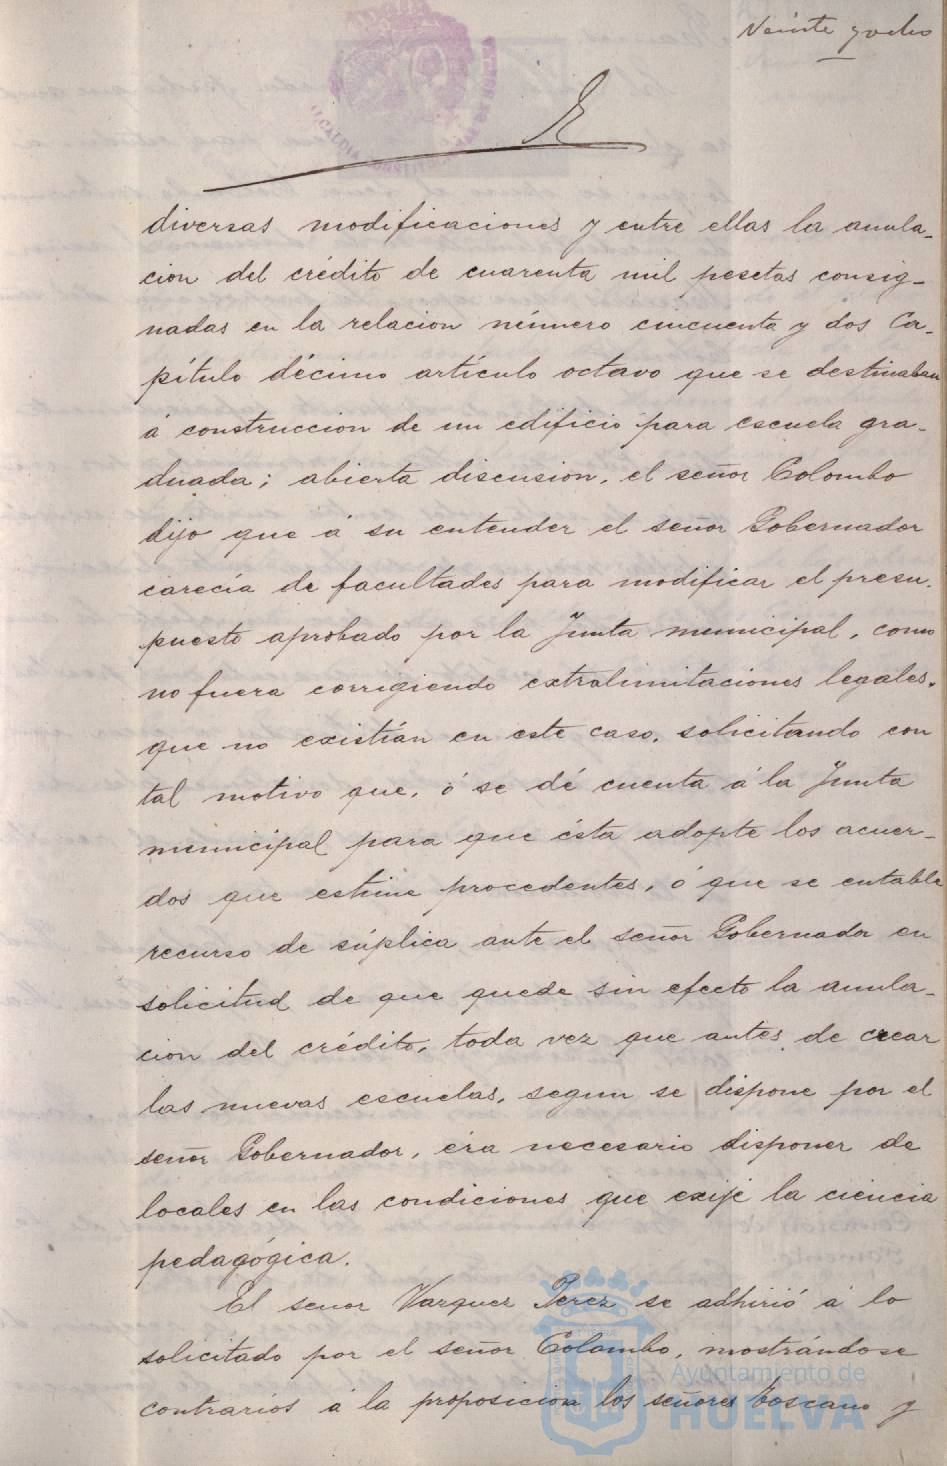 Veinte y ocho
diversas modificaciones y entre ellas la anula-
cion del crédito de cuarenta mil pesetas consig-
nadas en la relacion número cincuenta y dos Ca-
pítulo décimo artículo octavo que se destinaban
á construccion de un edificio para escuela gra-
duada; abierta discusion, el señor Colombo
dijo que á su entender el señor Gobernador
carecía de facultades para modificar el presu-
puesto aprobado por la Junta municipal, como
no fuera corrigiendo extralimitaciones legales,
que no existían en este caso, solicitando con
tal motivo que, ó se dé cuenta á la Junta
municipal para que ésta adopte los acuer-
dos que estime procedentes, ó que se entable
recurso de súplica ante el señor Gobernador en
solicitud de que quede sin efecto la anula-
cion del crédito, toda vez que antes de crear
las nuevas escuelas, segun se dispone por el
señor Gobernador, era necesario disponer de
locales en las condiciones que exije la ciencia
pedagógica.
El señor Vazquez Perez se adhirió á lo
solicitado por el señor Colombo, mostrándose
contrarios á la proposicion los señores Toscano y
Ayuntamiento de
HUELVA